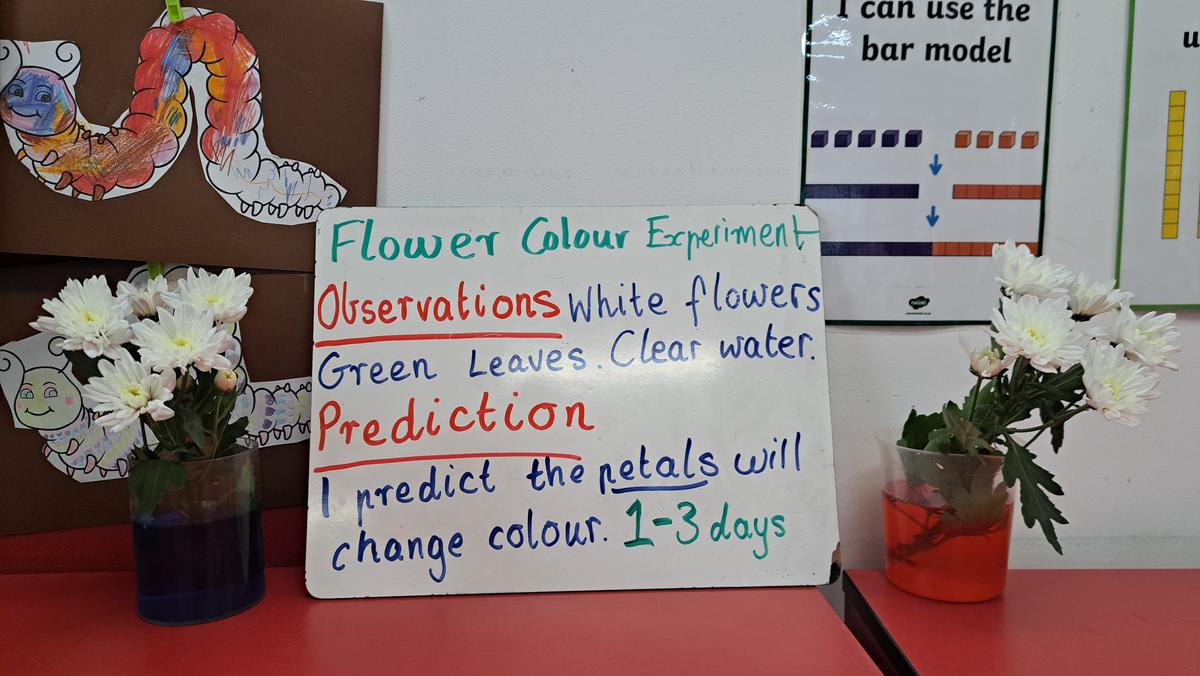 I can use the
bar model
Flower Colour Experiment
Observations White flowers
Green Leaves. Clear water.
Prediction
I predict the petals will
change colour. 1-3 days